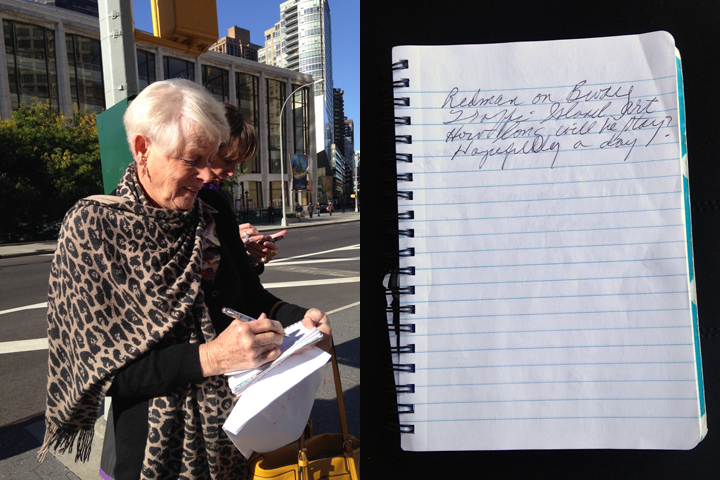 Redman on Busy
Traffic Island Art
How long will he stay?
Hopefully a day.